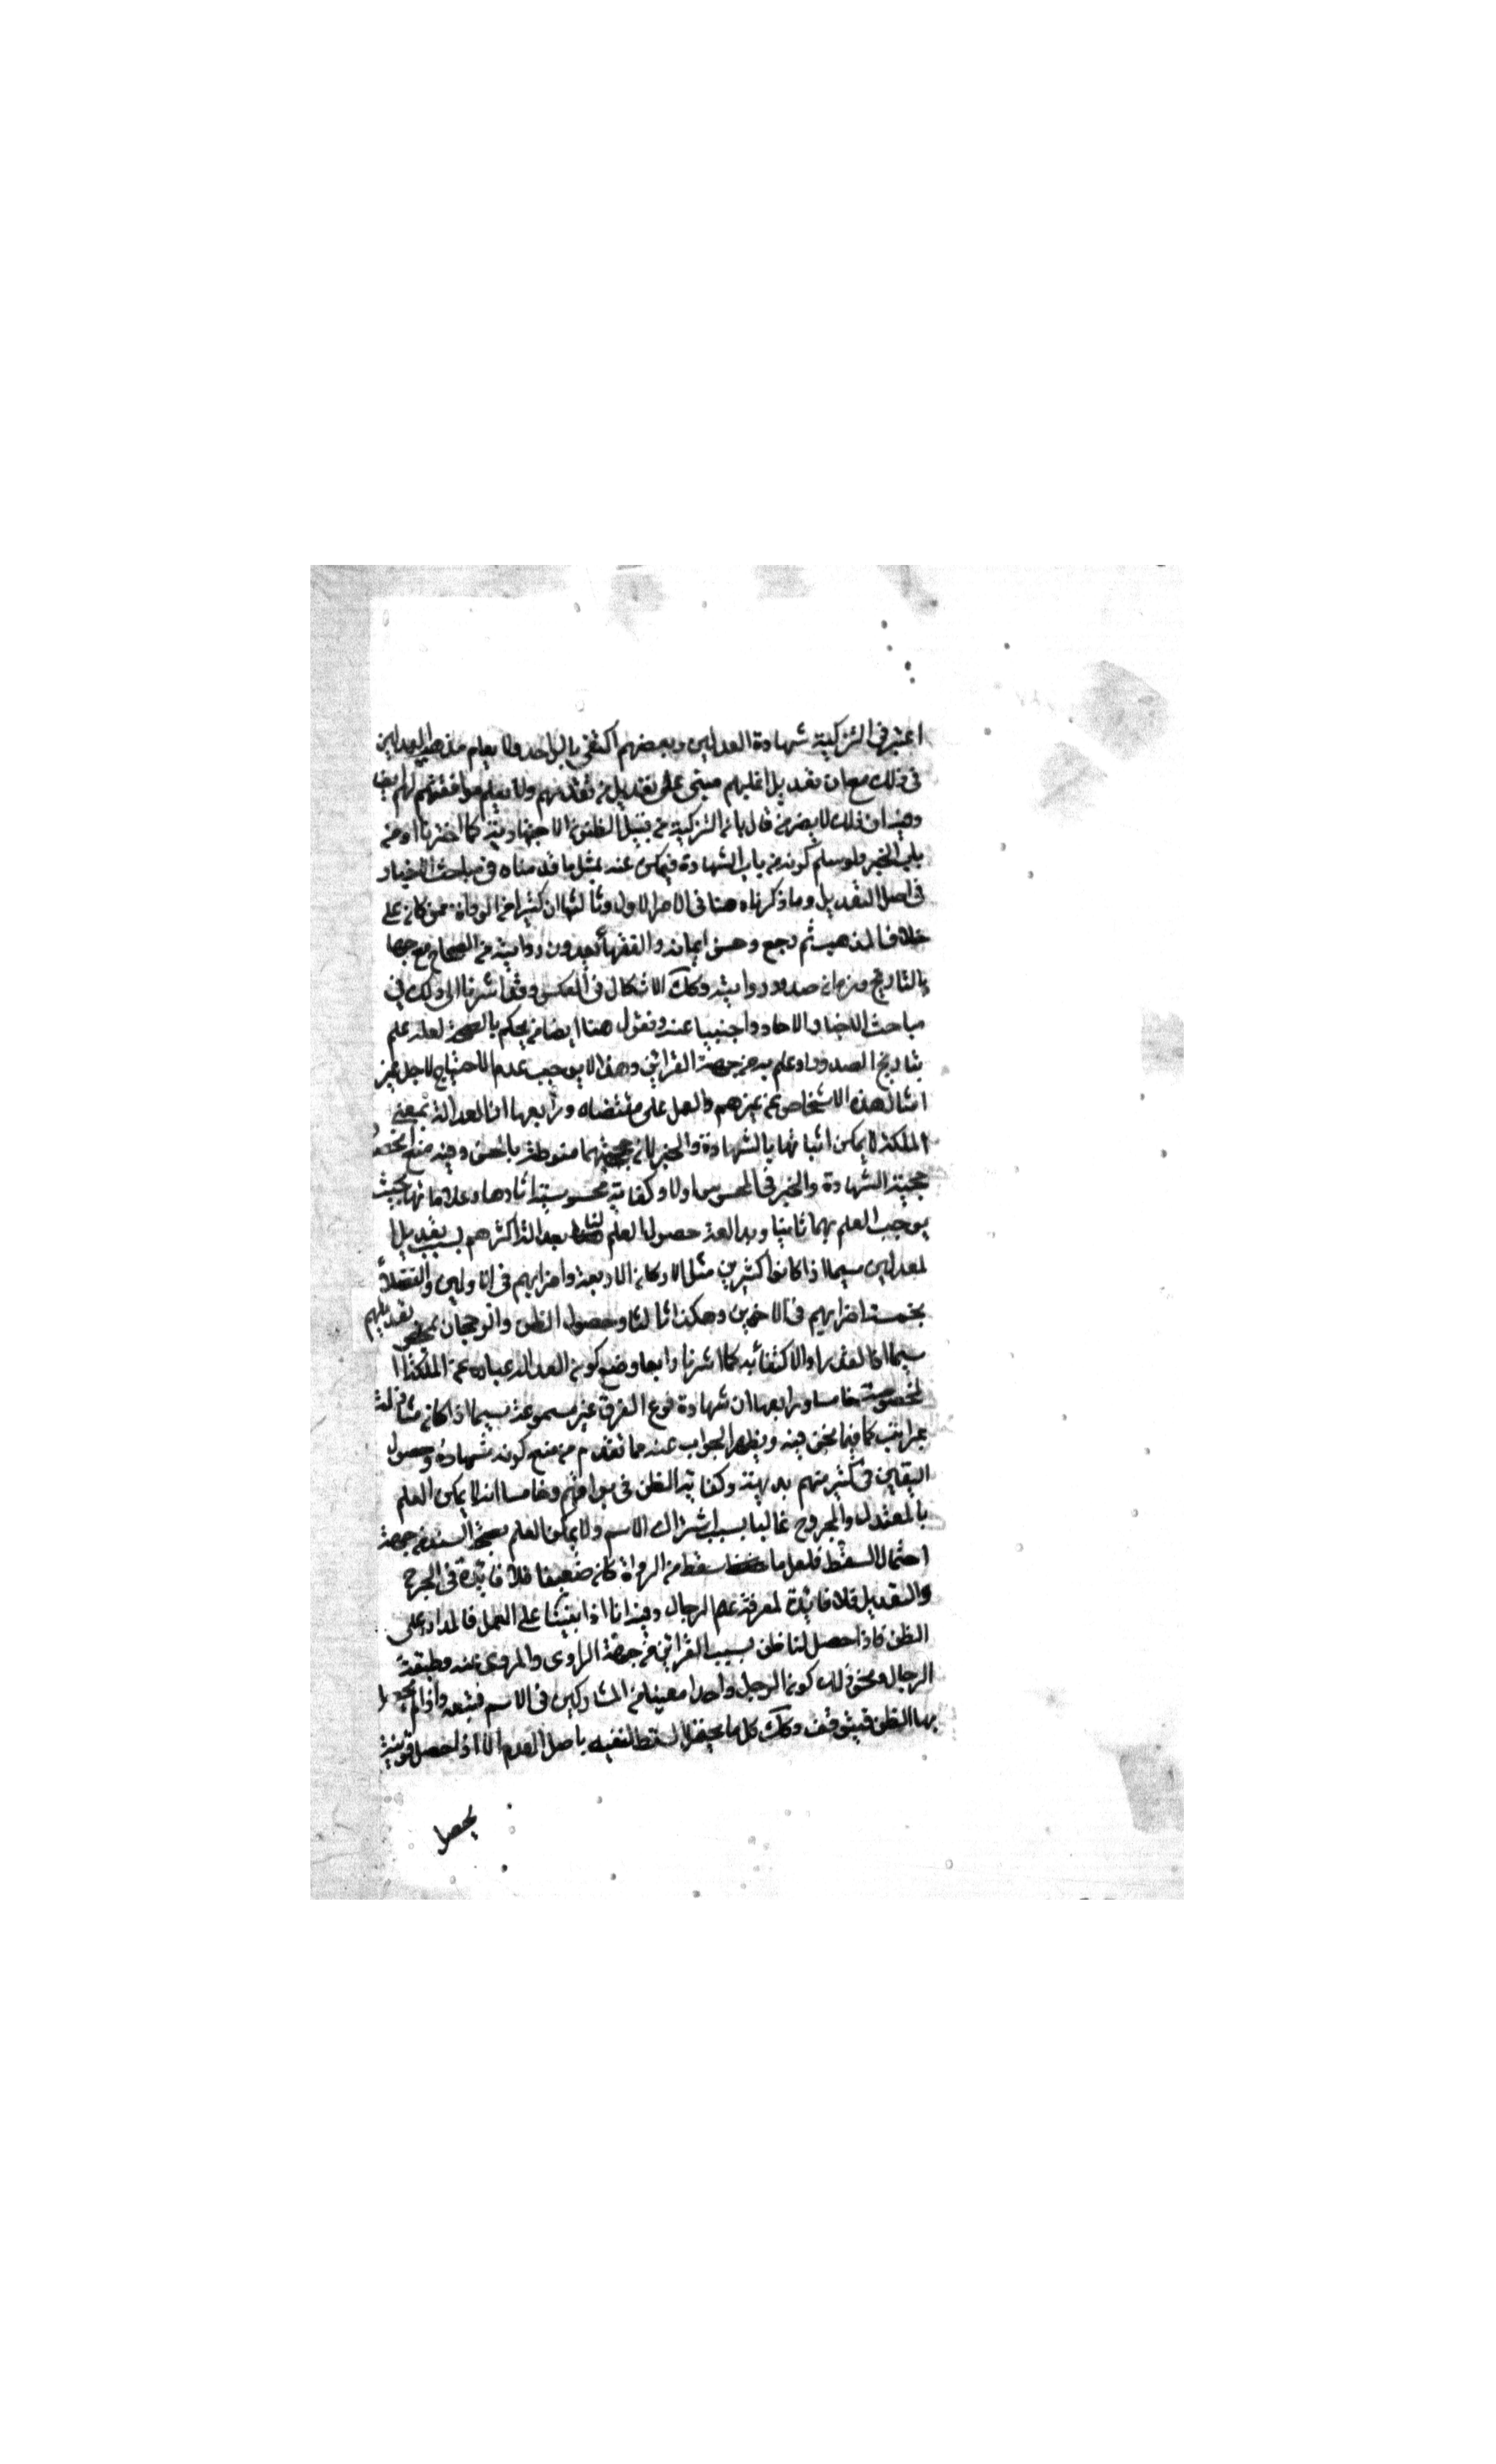 اعتبر فى التزكية شهادة العدلين وبعضهم اكتفى بالواحد ولا يعلم مذهب المعدلين
فى ذلك مع ان تعديل اغلبهم مبتنى على تعديل من تقدمهم ولا يعلم موافقتهم لهم ايضا
وفيه ان ذلك لا يضر من قال بان التزكية من قبيل الظنون الاجتهادية كما اخترنا او من
باب الخبر ولو سلم كونه من باب الشهادة فيمكن عنه بمثل ما قدمناه فى مباحث الاخبار
فى اصل التعديل وما ذكرناه هنا فى الامر الاول وثالثها ان كثيرا من الرواة ممن كان على
خلاف المذهب ثم رجع وحسن ايمانه والفقهاء يعدون روايته من الصحاح مع جهلهم
بالتاريخ وزمان صدور روايته وكك الاشكال فى العكس وقد اشرنا الى ذلك فى
مباحث الاخبار الاحاد واجبنا عنه ونقول هنا ايضا من يحكم بالصحة لعله علم
بتاريخ الصدور او علم به من جهة القرائن وهذا لا يوجب عدم الاحتياج لاجل غير
امثال هذه الاشخاص عن غيرهم والعمل على مقتضاه ورابعها ان العدالة بمعنى
الملكة لا يمكن اثباتها بالشهادة والخبر لان حجيتهما منوطة بالحس وفيه منع انحصار
حجية الشهادة والخبر فى المحسوس اولا وكفاية محسوسية اثارها وعلاماتها بحيث
يوجب العلم بهما ثانيا وبداهة حصول العلم لنا بعدالة اكثرهم بسبب تعديل ا
لمعدلين سيما اذا كانوا كثيرين مثل الاركان الاربعة واضرابهم فى الاولين والفضلاء
الخمسة واضرابهم فى الاخرين وهكذا ثالثا وحصول الظن والرجحان بمحض تعديلهم
سيما فى القدماء والاكتفاء به كما اشرنا رابعا ومنع كون العدالة عبارة عن الملكة ا
لمخصوصة خامسا ورابعها ان شهادة فرع الفرع غير مسموعة سيما اذا كان متنازلة
بمراتب كما فيما نحن فيه ويظهر الجواب عنه مما تقدم من منع كونه شهادة وحصول
اليقين فى كثير منهم بديهة وكفاية الظن فى بواقيهم وخامسا انه لا يمكن العلم
بالمعتدل والمجروح غالبا بسبب اشتراك الاسم ولا يمكن العلم بصحة السند من جهة
احتمال السقط فلعل ما سقط من الرواة كان ضعيفا فلا فائدة فى الجرح
والتعديل فلا فائدة لمعرفة علم الرجال وفيه انا اذا بنينا على العمل فالمدار على
الظن فاذا حصل لنا ظن بسبب القرائن من جهة الراوى والمروى عنه وطبقة
الرجال ونحو ذلك كون الرجل واحدا معينا من المشاركين فى الاسم فنتبعه واذا لم يحصل
بها الظن فيتوقف وكك كل ما يحتمل السقط لنفيه باصل العدم الا اذا حصل قرينة
يحصل